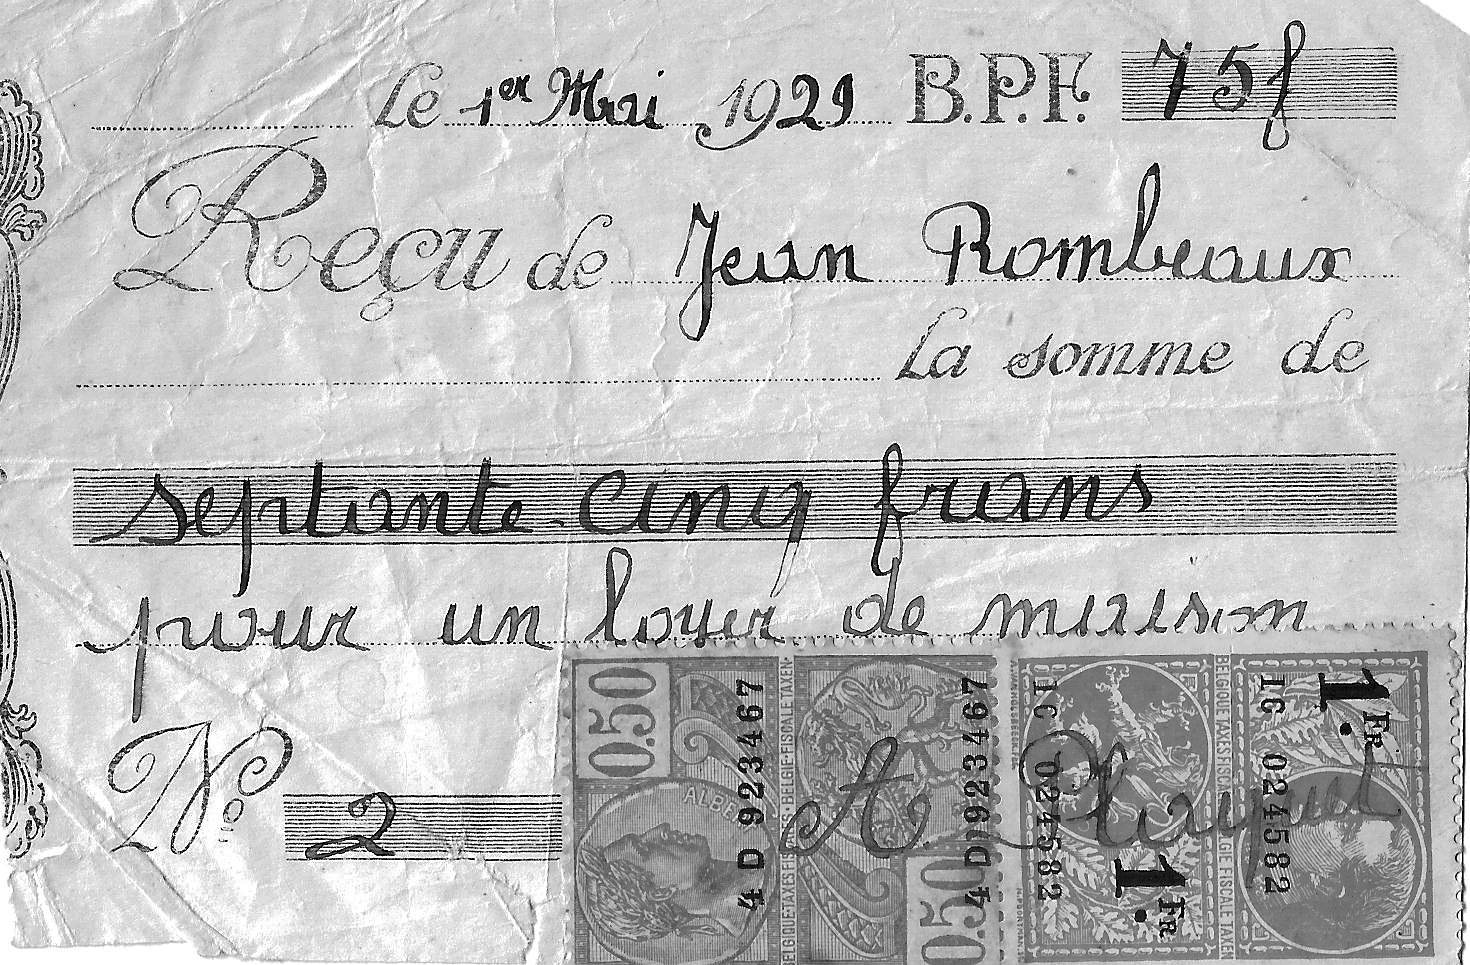 Le 1er Mai 1929 B.P.F. 75f
Reçu de Jean Rombeaux
La somme de
septante-cinq frans
pour un loyer de maison
No. 2
0.50
ALBE
4 D 923467
BELGIQUE·TAXES FISCALES·BELGIE·FISCALE TAXEN
4 D 923467
0.50
1C 024582
1. FR
BELGIQUE TAXES FISCALES BELGIE FISCALE TAXEN
1C 024582
1. FR
A.